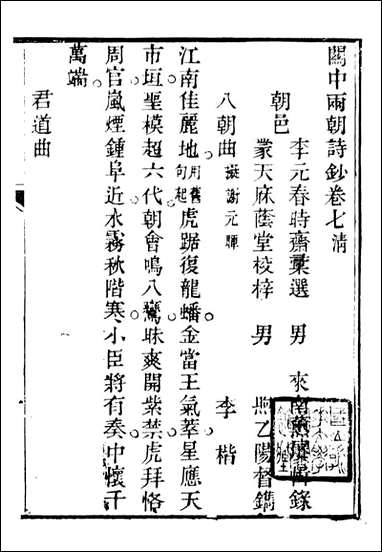 關中兩朝詩鈔卷七清
李元春時齋彙選 男 來南
朝邑
蒙天庥蔭堂校梓 男 乙陽督鐫
入朝曲 擬謝元暉 李楷
江南佳麗地用舊句起虎踞復龍蟠金當王氣萃星應天
市垣聖模超六代朝會鳴八鸞昧爽開紫禁虎拜恪
周官嵐煙鍾阜近水霧秋階寒小臣將有奏中懷千
萬端
君道曲